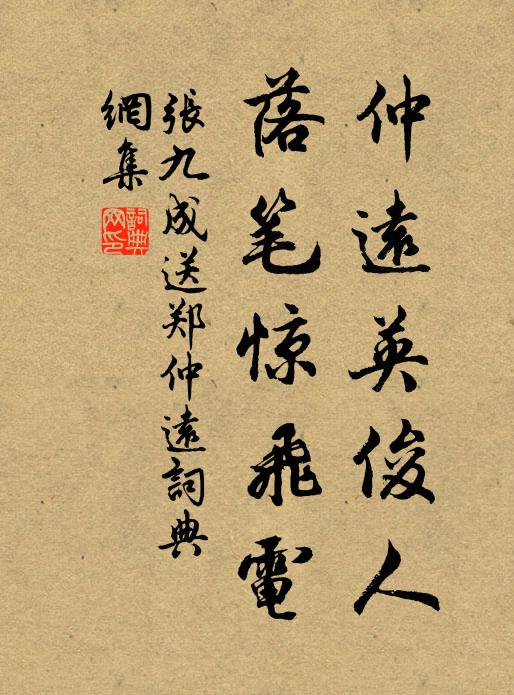 仲遠英俊人
落笔惊飛電
張九成送郑仲遠詞典
網集
詞典
网印